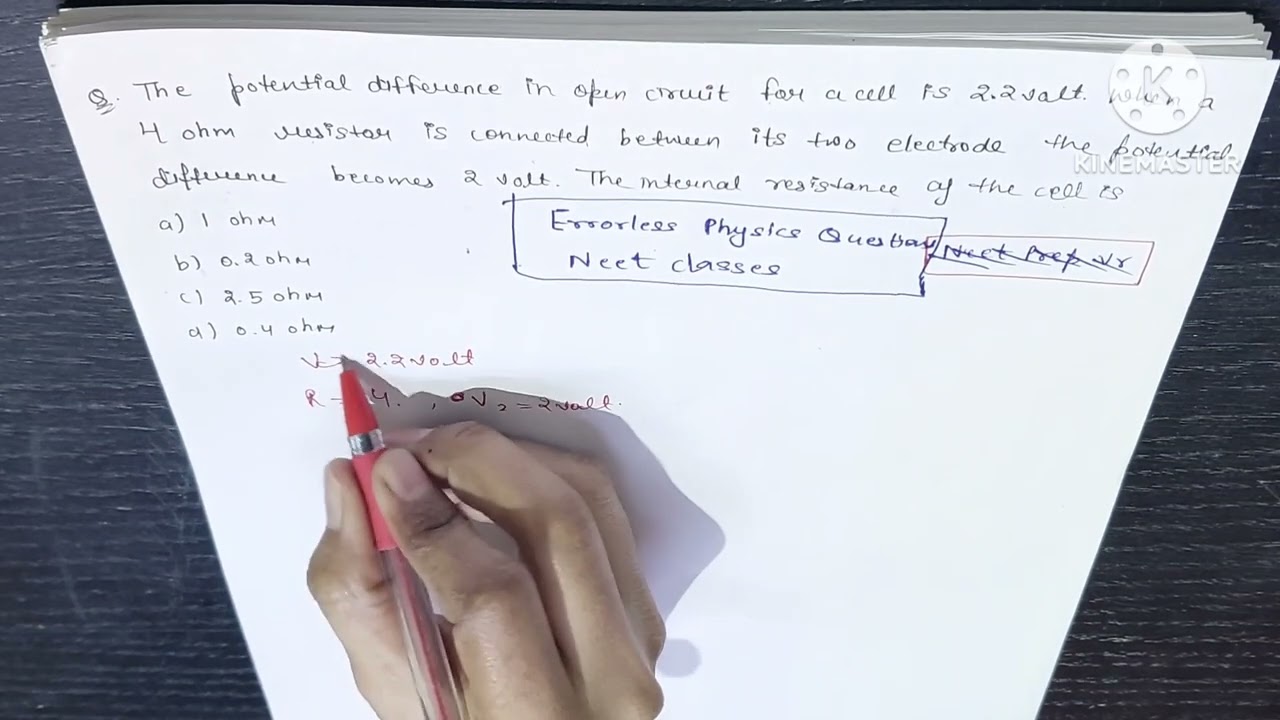 Q. The potential difference in open circuit for a cell is 2.2 volt. When a
4 ohm resistor is connected between its two electrode the potential
difference becomes 2 volt. The internal resistance of the cell is
a) 1 ohm
b) 0.2 ohm
c) 2.5 ohm
d) 0.4 ohm
Errorless Physics Question
Neet classes
Neet Prep Vr
V = 2.2 volt
R = 4. , V2 = 2 volt.
K
KINEMASTER